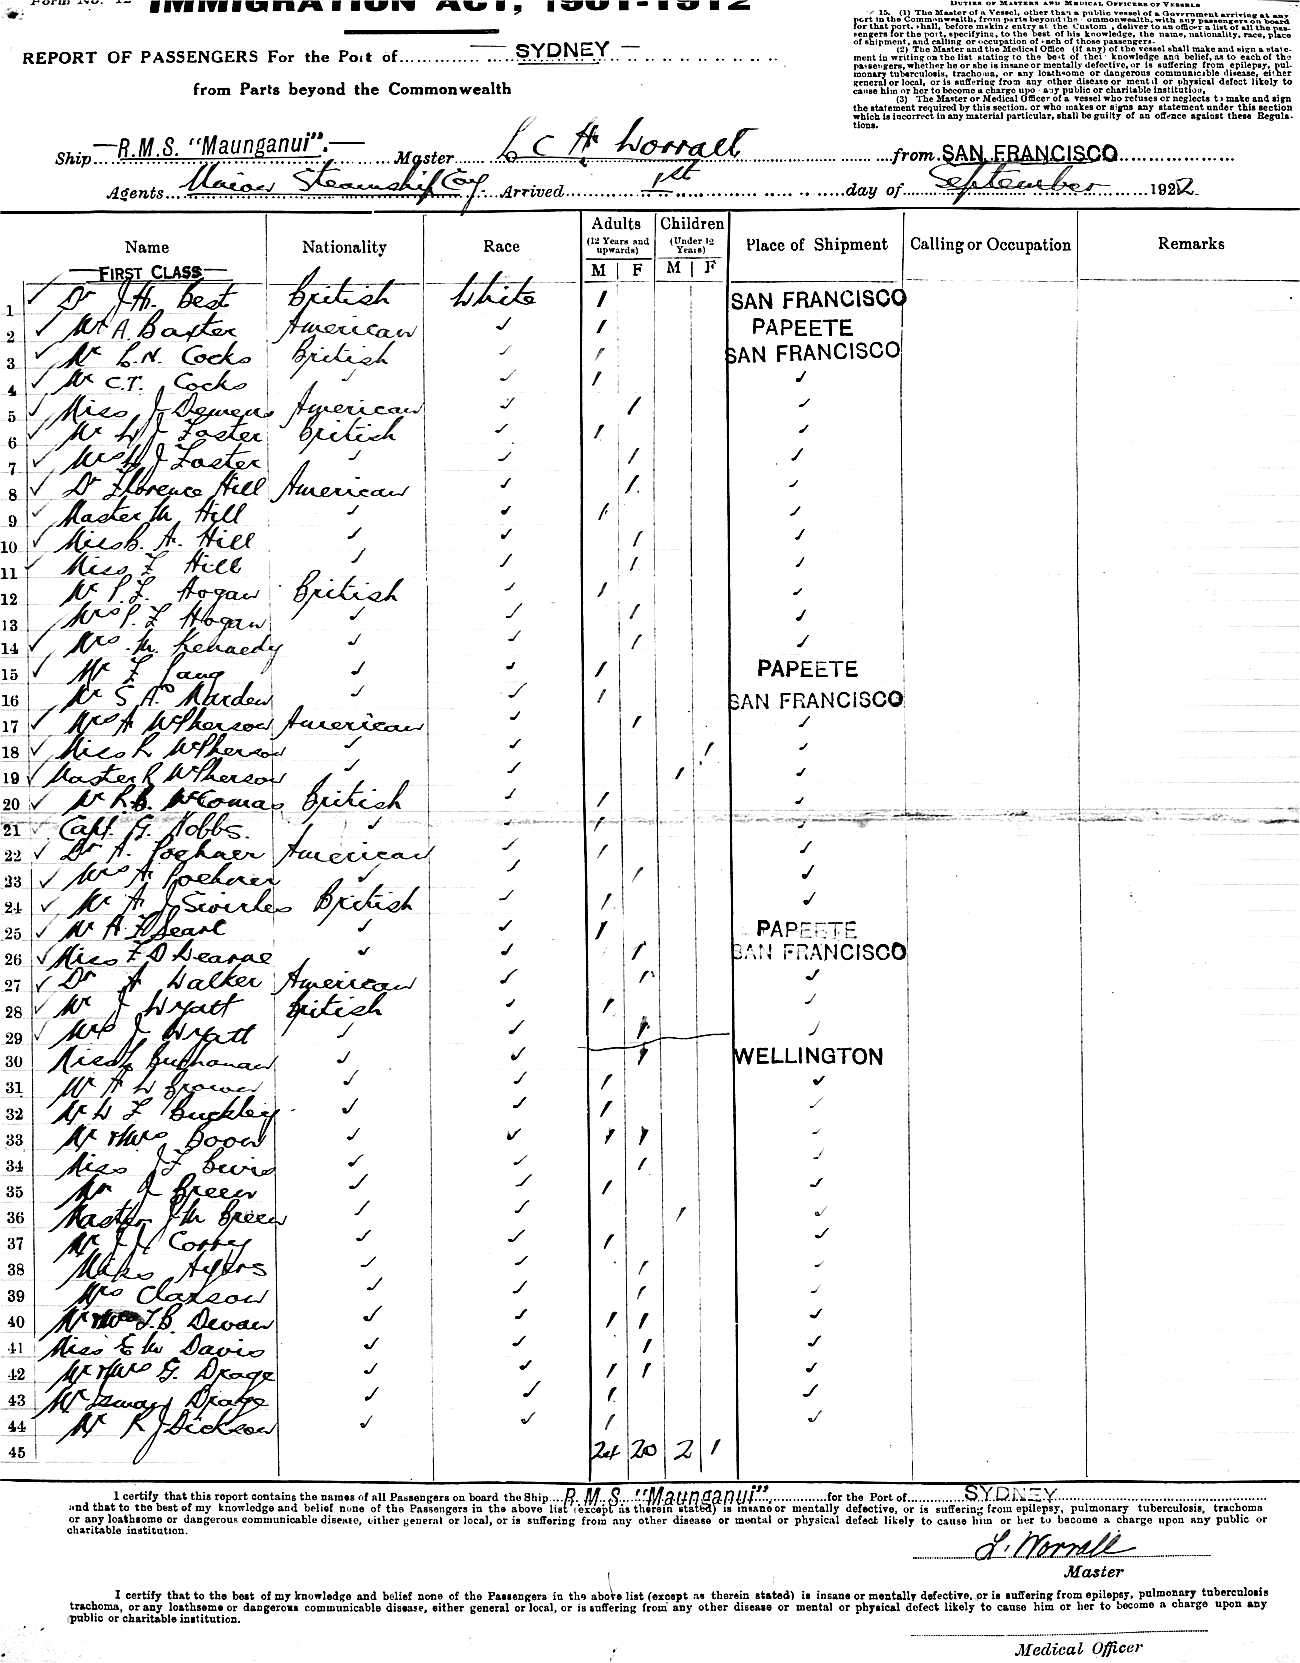 Form No. 12
IMMIGRATION ACT, 1901-1912
DUTIES OF MASTERS AND MEDICAL OFFICERS OF VESSELS
15. (1) The Master of a Vessel, other than a public vessel of a Government arriving at any
port in the Commonwealth, from parts beyond the Commonwealth, with any passengers on board
for that port, shall, before making entry at the Customs, deliver to an officer a list of all the pas-
sengers for the port, specifying, to the best of his knowledge, the name, nationality, race, place
of shipment, and calling or occupation of each of those passengers.
(2) The Master and the Medical Office (if any) of the vessel shall make and sign a state-
ment in writing on the list stating to the best of their knowledge and belief, as to each of the
passengers, whether he or she is insane or mentally defective, or is suffering from epilepsy, pul-
monary tuberculosis, trachoma, or any loathsome or dangerous communicable disease, either
general or local, or is suffering from any other disease or mental or physical defect likely to
cause him or her to become a charge upon any public or charitable institution.
(3) The Master or Medical Officer of a vessel who refuses or neglects to make and sign
the statement required by this section, or who makes or signs any statement under this section
which is incorrect in any material particular, shall be guilty of an offence against these Regula-
tions.
REPORT OF PASSENGERS For the Port of SYDNEY
from Parts beyond the Commonwealth
Ship R.M.S. "Maunganui". Master L C H Worrall from SAN FRANCISCO
Agents Union Steamship Coy. Arrived 1st day of September 1922
Name Nationality Race Adults (12 Years and upwards) M F Children (Under 12 Years) M F Place of Shipment Calling or Occupation Remarks
FIRST CLASS
1 ✓ Dr J.H. Best British White 1 SAN FRANCISCO
2 ✓ Mr A. Baxter American ✓ 1 PAPEETE
3 ✓ Mr L.N. Cocks British ✓ 1 SAN FRANCISCO
4 ✓ Mr C.T. Cocks ✓ ✓ 1 ✓
5 ✓ Miss J Demens American ✓ 1 ✓
6 ✓ Mr W J Foster British ✓ 1 ✓
7 ✓ Mrs W J Foster ✓ ✓ 1 ✓
8 ✓ Dr Florence Hill American ✓ 1 ✓
9 ✓ Master M Hill ✓ ✓ 1 ✓
10 ✓ Miss B. A. Hill ✓ ✓ 1 ✓
11 ✓ Miss F Hill ✓ ✓ 1 ✓
12 ✓ Mr P.F. Hogan British ✓ 1 ✓
13 ✓ Mrs P.F Hogan ✓ ✓ 1 ✓
14 ✓ Mrs M. Kennedy ✓ ✓ 1 ✓
15 ✓ Mr F Lang ✓ ✓ 1 PAPEETE
16 ✓ Mr S A Marden ✓ ✓ 1 SAN FRANCISCO
17 ✓ Mrs A McPherson American ✓ 1 ✓
18 ✓ Miss R McPherson ✓ ✓ 1 ✓
19 ✓ Master R McPherson ✓ ✓ 1 ✓
20 ✓ Mr R.B. McComas British ✓ 1 ✓
21 ✓ Capt. G. Hobbs. ✓ ✓ 1 ✓
22 ✓ Dr A. Poehner American ✓ 1 ✓
23 ✓ Mrs A Poehner ✓ ✓ 1 ✓
24 ✓ Mr A J Swirles British ✓ 1 ✓
25 ✓ Mr A Searl ✓ ✓ 1 PAPEETE
26 ✓ Miss F D Dearne ✓ ✓ 1 SAN FRANCISCO
27 ✓ Dr A Walker American ✓ 1 ✓
28 ✓ Mr J Wyatt British ✓ 1 ✓
29 ✓ Mrs J Wyatt ✓ ✓ 1 ✓
30 Miss L Buchanan ✓ ✓ 1 WELLINGTON
31 Mr A W Brown ✓ ✓ 1 ✓
32 Mr W F Buckley ✓ ✓ 1 ✓
33 Mr & Mrs Boon ✓ ✓ 1 1 ✓
34 Miss J F Bevis ✓ ✓ 1 ✓
35 Mr J Breen ✓ ✓ 1 ✓
36 Master J M Breen ✓ ✓ 1 ✓
37 Mr J J Corry ✓ ✓ 1 ✓
38 Miss Ayers ✓ ✓ 1 ✓
39 Mrs Claxson ✓ ✓ 1 ✓
40 Mr & Mrs F.B. Dewan ✓ ✓ 1 1 ✓
41 Miss E M Davis ✓ ✓ 1 ✓
42 Mr & Mrs G. Drage ✓ ✓ 1 1 ✓
43 Mr Drage ✓ ✓ 1 ✓
44 Mr R J Dickson ✓ ✓ 1 ✓
45 24 20 2 1
I certify that this report contains the names of all Passengers on board the Ship R.M.S. "Maunganui", for the Port of SYDNEY
and that to the best of my knowledge and belief none of the Passengers in the above list (except as therein stated) is insane or mentally defective, or is suffering from epilepsy, pulmonary tuberculosis, trachoma
or any loathsome or dangerous communicable disease, either general or local, or is suffering from any other disease or mental or physical defect likely to cause him or her to become a charge upon any public or
charitable institution.
L. Worrall
Master
I certify that to the best of my knowledge and belief none of the Passengers in the above list (except as therein stated) is insane or mentally defective, or is suffering from epilepsy, pulmonary tuberculosis
trachoma, or any loathsome or dangerous communicable disease, either general or local, or is suffering from any other disease or mental or physical defect likely to cause him or her to become a charge upon any
public or charitable institution.
Medical Officer